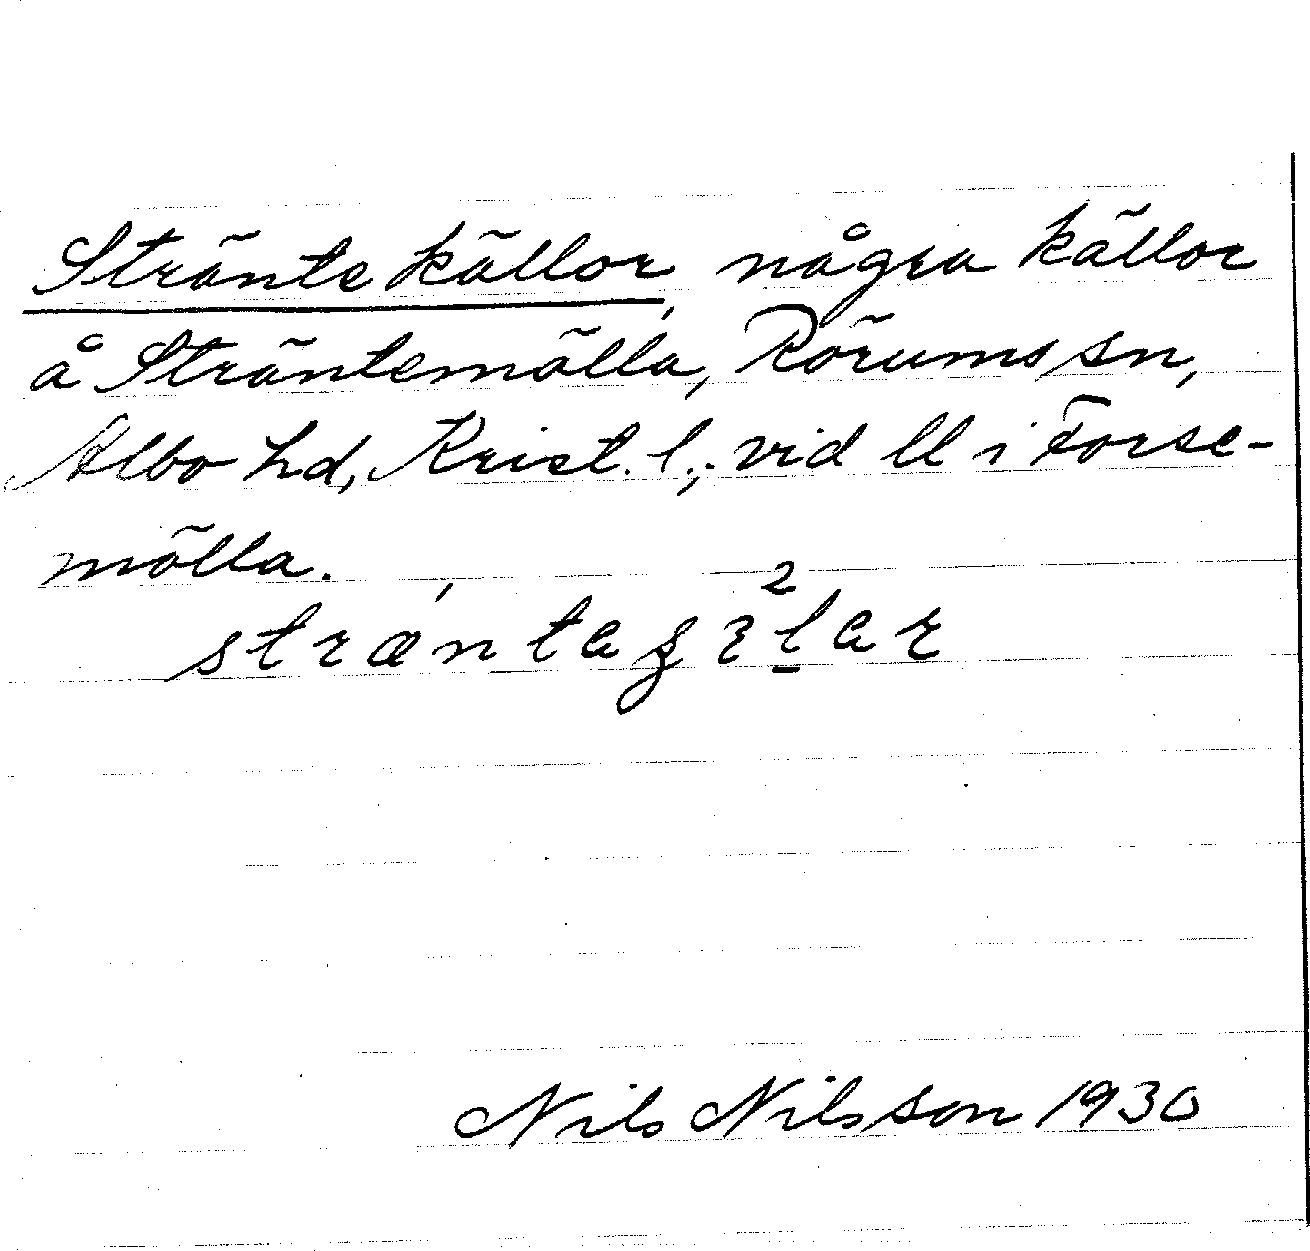 Sträntekällor, några källor
å Sträntemölla, Rörums sn,
Albo hd, Krist. l.; vid ll i Forse-
mölla.
Nils Nilsson 1930